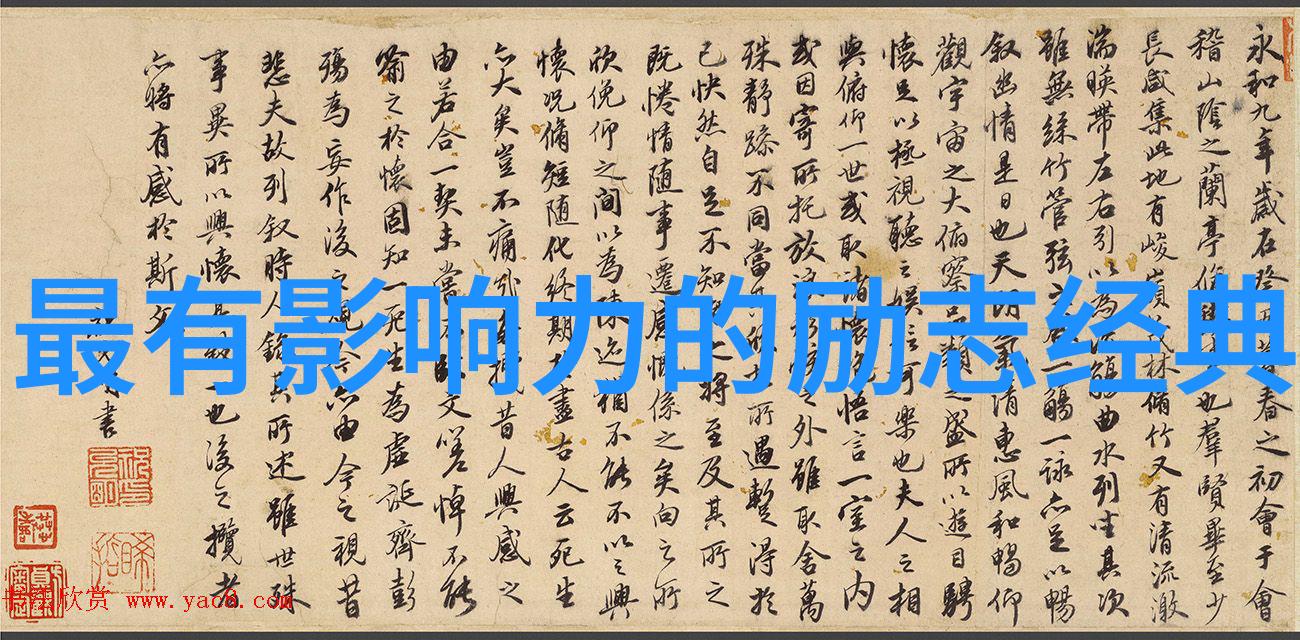 永和九年歲在癸丑暮春之初會于會
稽山陰之蘭亭脩也羣賢畢至少
長咸集此地有峻嶺茂林脩竹又有清流激
湍暎帶左右引以為流觴曲水列坐其次
雖無絲竹管弦之一觴一詠亦足以暢
叙幽情是日也天朗氣清惠風和暢仰
觀宇宙之大俯察品類之盛所以遊目騁
懷足以極視聽之娛信可樂也夫人之相
與俯仰一世或取諸懷抱悟言一室之內
或因寄所托放浪形之外雖取舍萬
殊静躁不同當其所遇暫得於
己快然自足不知之將至及其所之
既惓情随事遷感慨係之矣向之所
欣俛仰之間以為陳迹猶不能不以之興
懷况脩短随化終期於盡古人云死生
亦大矣豈不痛昔人興感之
由若合一契未嘗不臨文嗟悼不能
喻之於懷固知一死生為虛誕齊彭
殤為妄作後之視今亦由今之視昔
悲夫故列叙時人錄其所述雖世殊
事異所以興懷其致一也後之攬者
亦將有感於斯文
書
最有影响力的励志经典
欣赏 www.yac8.com